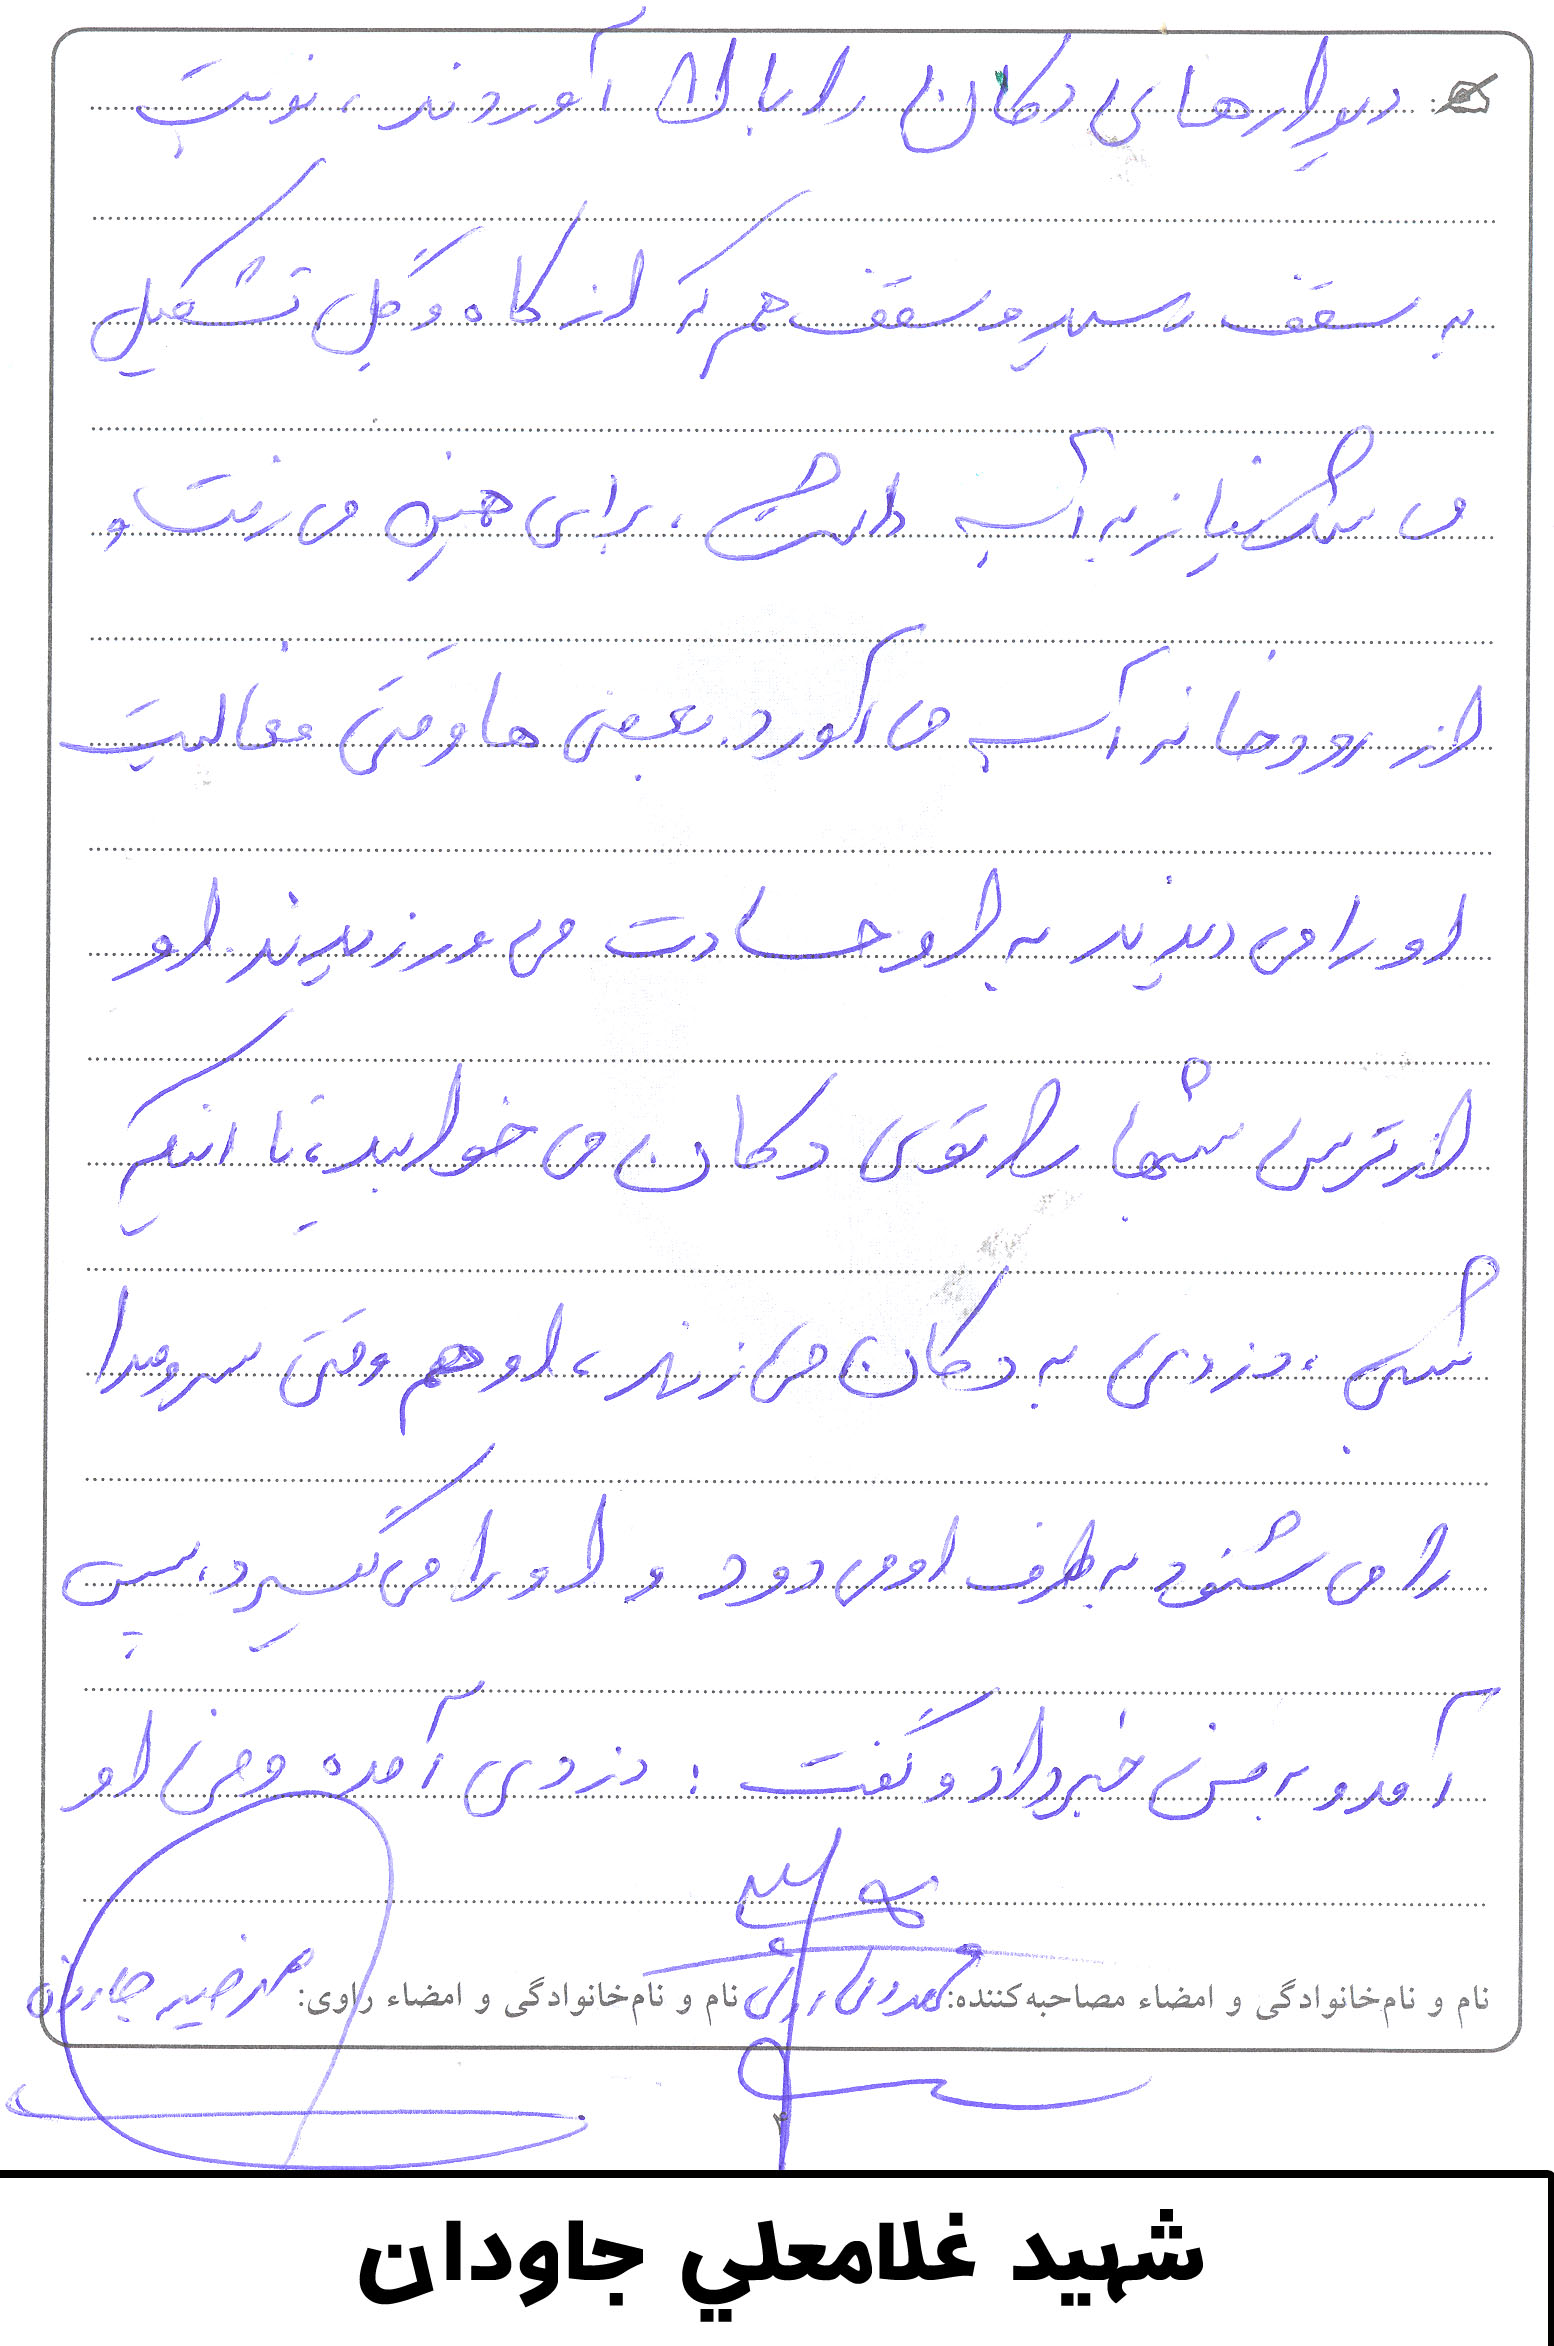 دیوارهای دکان را بالا آوردند، نوبت
به سقف رسید و سقف هم که از کاه و گِل تشکیل
می شد نیاز به آب داشت، برای همین می رفت و
از رودخانه آب می آورد. بعضی ها وقتی فعالیت
او را می دیدند به او حسادت می ورزیدند. او
از ترس شبها را توی دکان می خوابید، تا اینکه
شبی، دزدی به دکان می زند، او هم وقتی سر و صدا
را می شنود به طرف او می دود و او را می گیرد، سپس
آمد و به من خبر داد و گفت: دزدی آمده و من او
نام و نام‌خانوادگی و امضاء مصاحبه‌کننده: نام و نام‌خانوادگی و امضاء راوی:
۳
شهيد غلامعلي جاودان